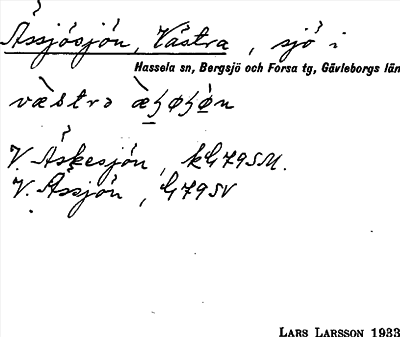 Ässjösjön, Västra, sjö i
Hassela sn, Bergsjö och Forsa tg, Gävleborgs län
V. Äskesjön, kG79SM.
V. Ässjön, G79SV
LARS LARSSON 1933